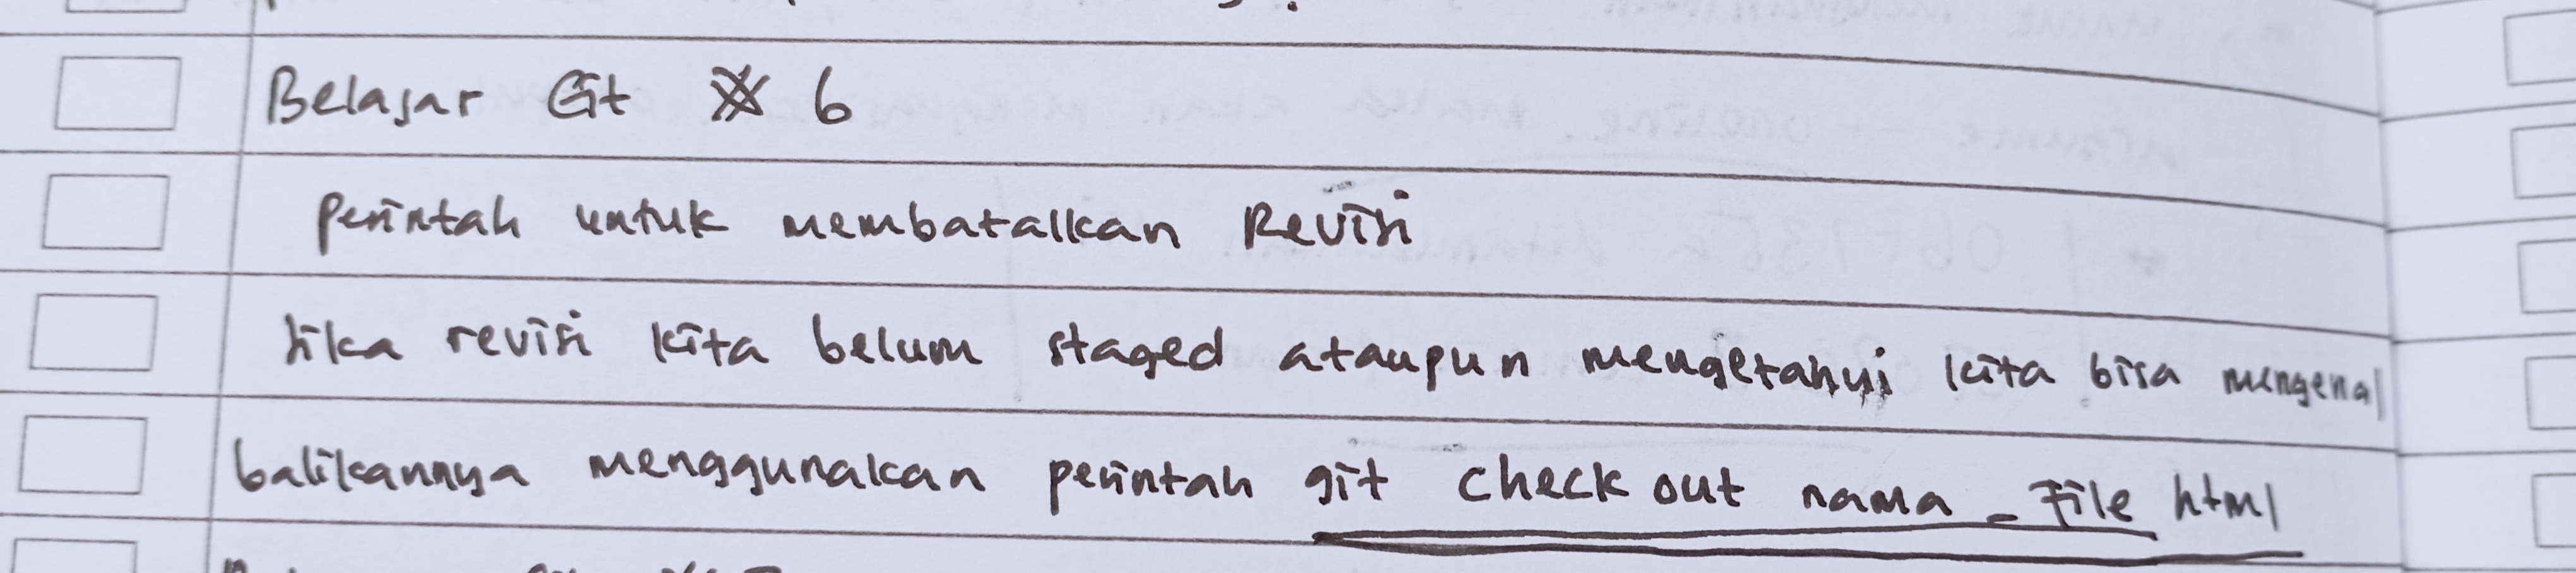 Belajar Git 6
perintah untuk membatalkan Revisi
jika revisi kita belum staged ataupun mengetahui kita bisa mengenal
balikannya menggunakan perintah git check out nama_file html